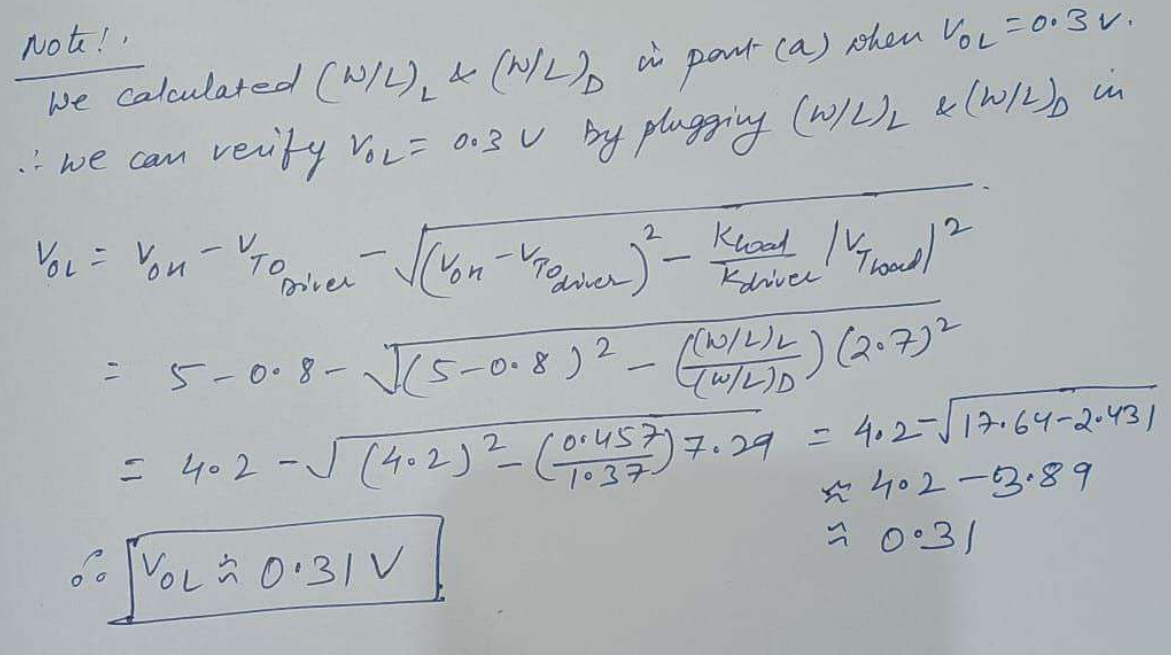 Note!.
We calculated (W/L)_L & (W/L)_D in part (a) when V_OL = 0.3 V.
∴ we can verify V_OL = 0.3 V by plugging (W/L)_L & (W/L)_D in
V_OL = V_OH - V_TO Driver - √((V_OH - V_TO driver)² - Kload/Kdriver |V_Tload|²)
= 5 - 0.8 - √((5 - 0.8)² - ((W/L)_L/(W/L)_D)(2.7)²)
= 4.2 - √((4.2)² - (0.457/1.37)7.29) = 4.2 - √(17.64 - 2.431)
≈ 4.2 - 3.89
≈ 0.31
∴ V_OL ≈ 0.31 V